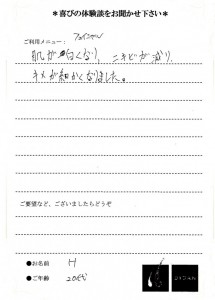 ＊喜びの体験談をお聞かせ下さい＊
ご利用メニュー： フェイシャル
肌が白くなり、ニキビが減り、
キメが細かくなりました。
ご要望など、ございましたらどうぞ
●お名前 H
●ご年齢 20代